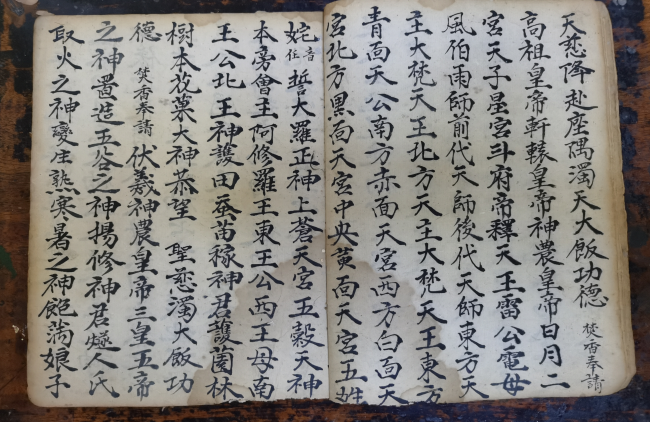 天慈降赴座隅濁天大飯功德 焚香奉請
高祖皇帝軒轅皇帝神農皇帝日月二
宮天子星宮斗府帝釋天王雷公電母
風伯雨師前代天師後代天師東方天
王大梵天王北方天王大梵天王東方
青面天公南方赤面天宮西方白面天
宮北方黑面天宮中央黃面天宮五姓
姹音任誓大羅正神上蒼天宮五穀天神
本旁會王阿修羅王東王公西王母南
王公北王神護田蚕苗稼神君護園林
樹本花菓大神恭望 聖慈濁大飯功
德 焚香奉請 伏羲神農皇帝三皇五帝
之神置造五谷之神揚修神君燧人氏
取火之神變生熟寒暑之神飽滿娘子